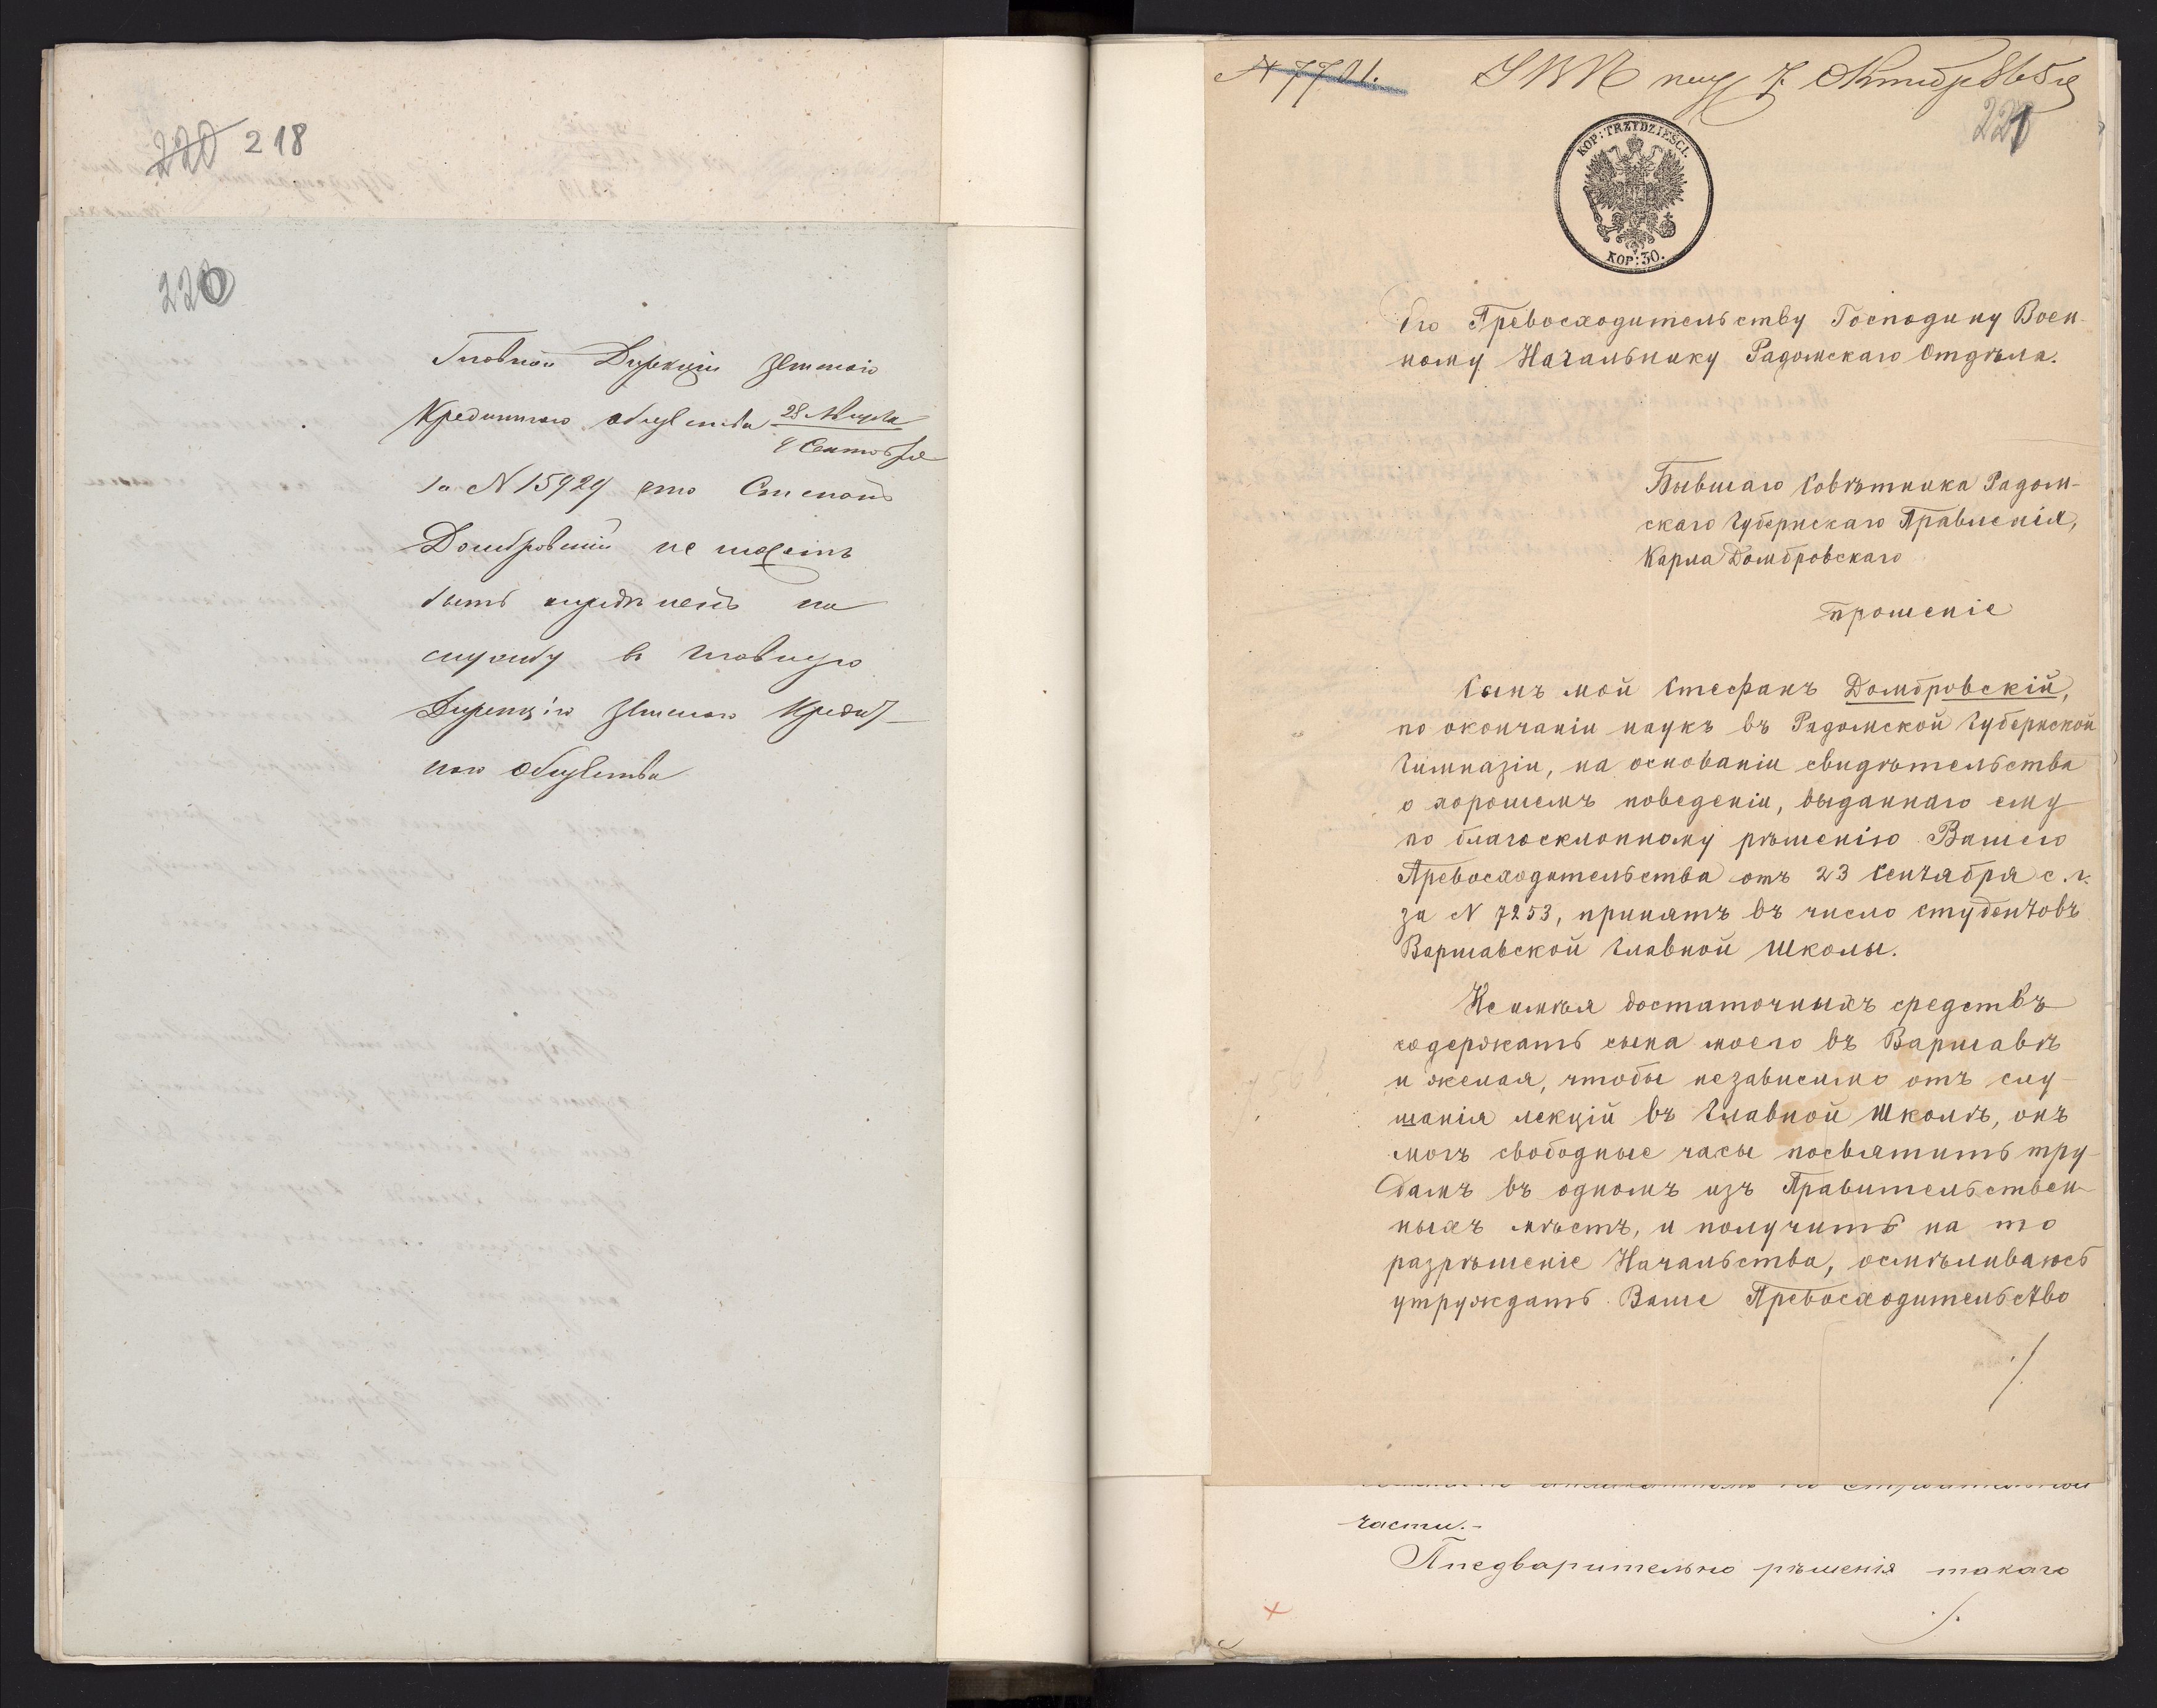 220 218
220
Главной Дирекціи Земскаго
Кредитнаго общества 28
Сентября
за N 15929 что Стефанъ
Домбровскій не можетъ
быть опредѣленъ на
службу въ Главную
Дирекцію Земскаго Кредит-
наго Общества
N 7701.
7 Октября 865 г
221
KOP: TRZYDZIEŚCI.
KOP: 30.
Его Превосходительству Господину Воен-
ному Начальнику Радомскаго Отдѣла.
Бывшаго Совѣтника Радом-
скаго Губернскаго Правленія,
Карла Домбровскаго
Прошеніе
Сынъ мой Стефанъ Домбровскій,
по окончаніи наукъ въ Радомской Губернской
Гимназіи, на основаніи свидѣтельства
о хорошемъ поведеніи, выданнаго ему
по благосклонному рѣшенію Вашего
Превосходительства отъ 23 Сентября с. г.
за N 7253, принятъ въ число студентовъ
Варшавской Главной Школы.
Не имѣя достаточныхъ средствъ
содержать сына моего въ Варшавѣ
и желая, чтобы независимо отъ слу-
шанія лекцій въ Главной Школѣ, онъ
могъ свободные часы посвятить тру-
дамъ въ одномъ изъ Правительствен-
ныхъ мѣстъ, и получить на то
разрѣшеніе Начальства, осмѣливаюсь
утруждать Ваше Превосходительство
./.
части.-
Предварительно рѣшенія такаго
./.